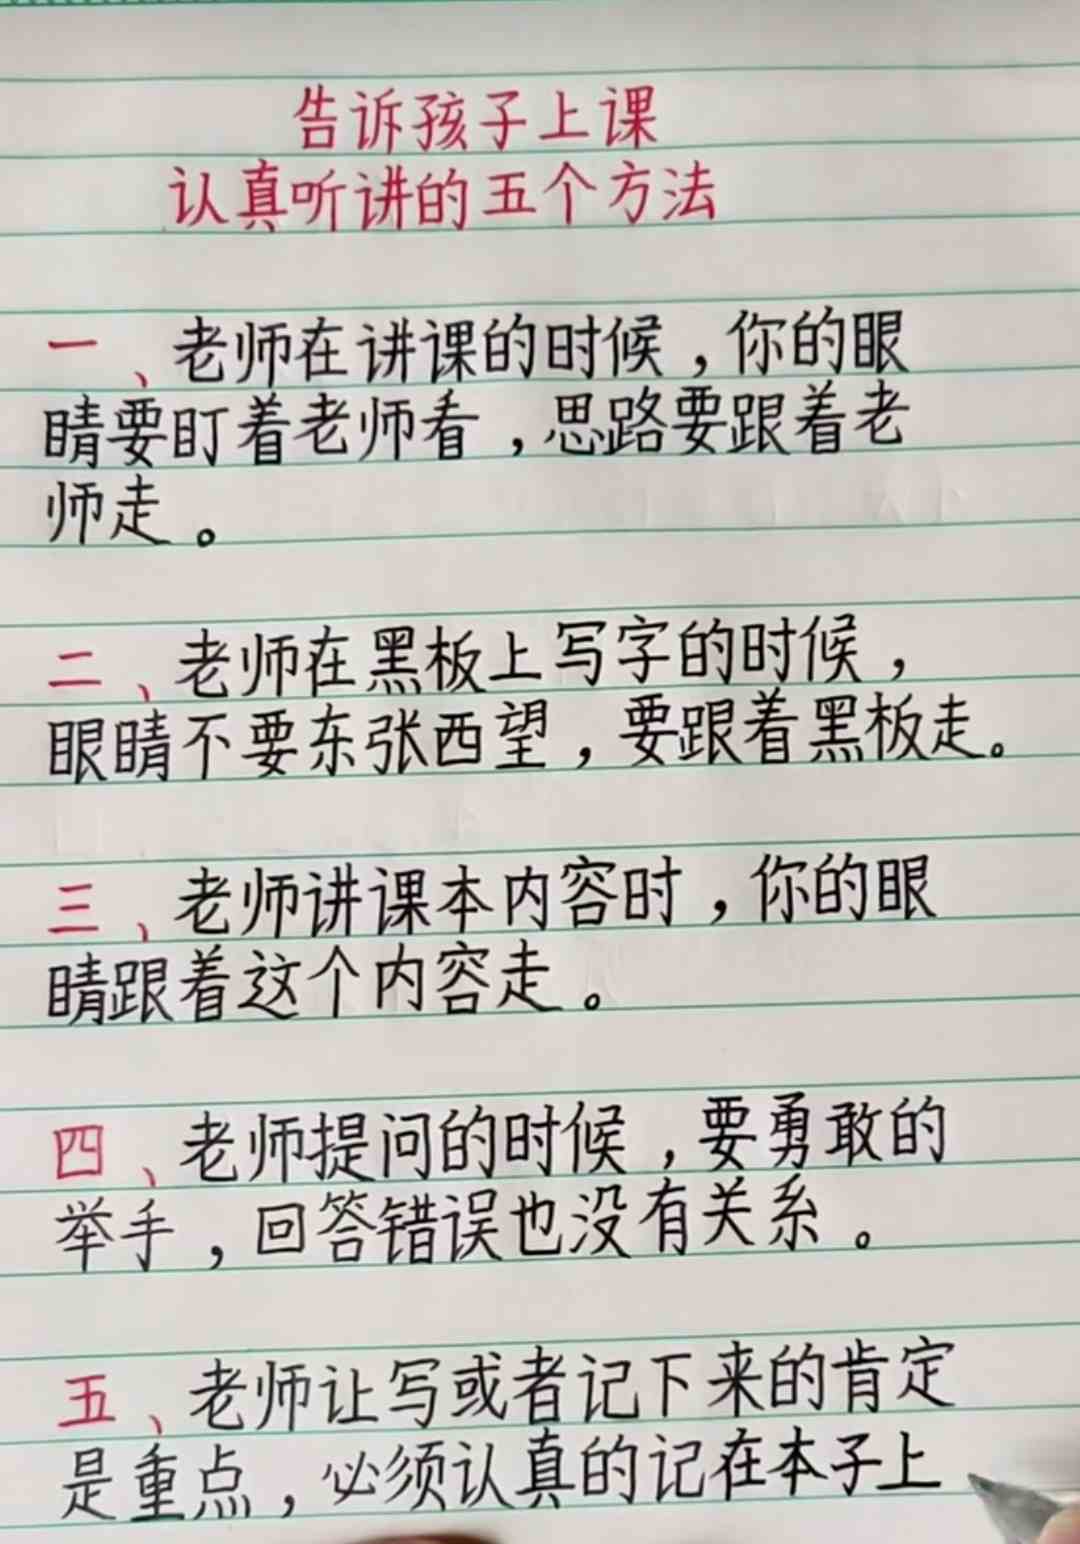 告诉孩子上课
认真听讲的五个方法
一、老师在讲课的时候,你的眼
睛要盯着老师看,思路要跟着老
师走。
二、老师在黑板上写字的时候,
眼睛不要东张西望,要跟着黑板走。
三、老师讲课本内容时,你的眼
睛跟着这个内容走。
四、老师提问的时候,要勇敢的
举手,回答错误也没有关系。
五、老师让写或者记下来的肯定
是重点,必须认真的记在本子上